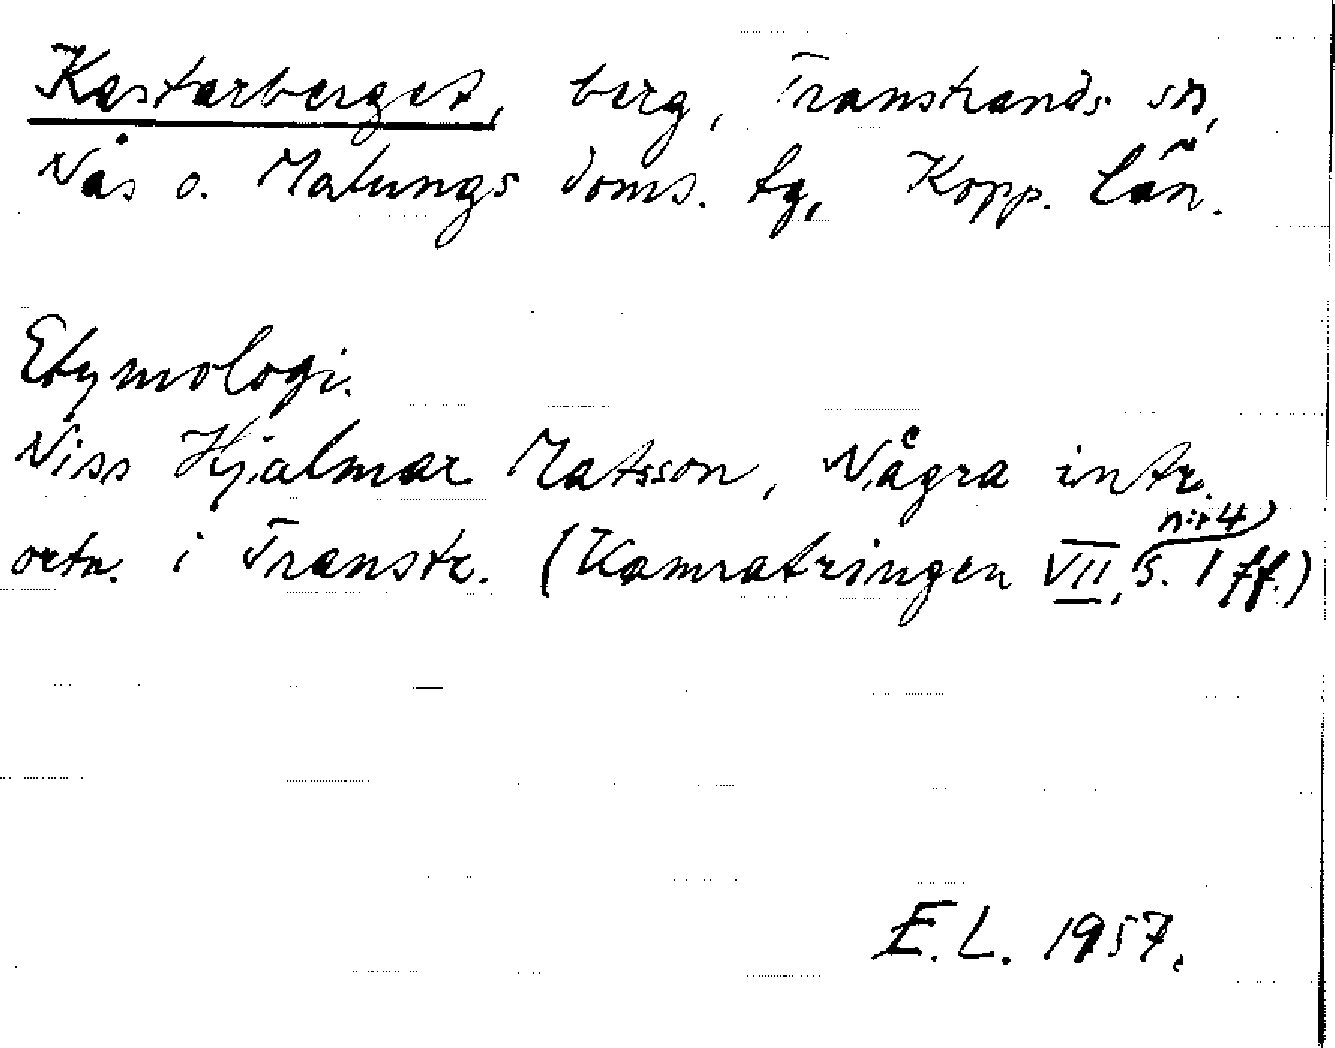 Kastarberget, berg, Transtrands sn,
Nås o. Malungs doms. tg, Kopp. län.
Etymologi.
Niss Hjalmar Matsson, Några intr.
ortn. i Transtr. (Kamratringen VII, nr 4, s. 1 ff.)
E.L. 1957.